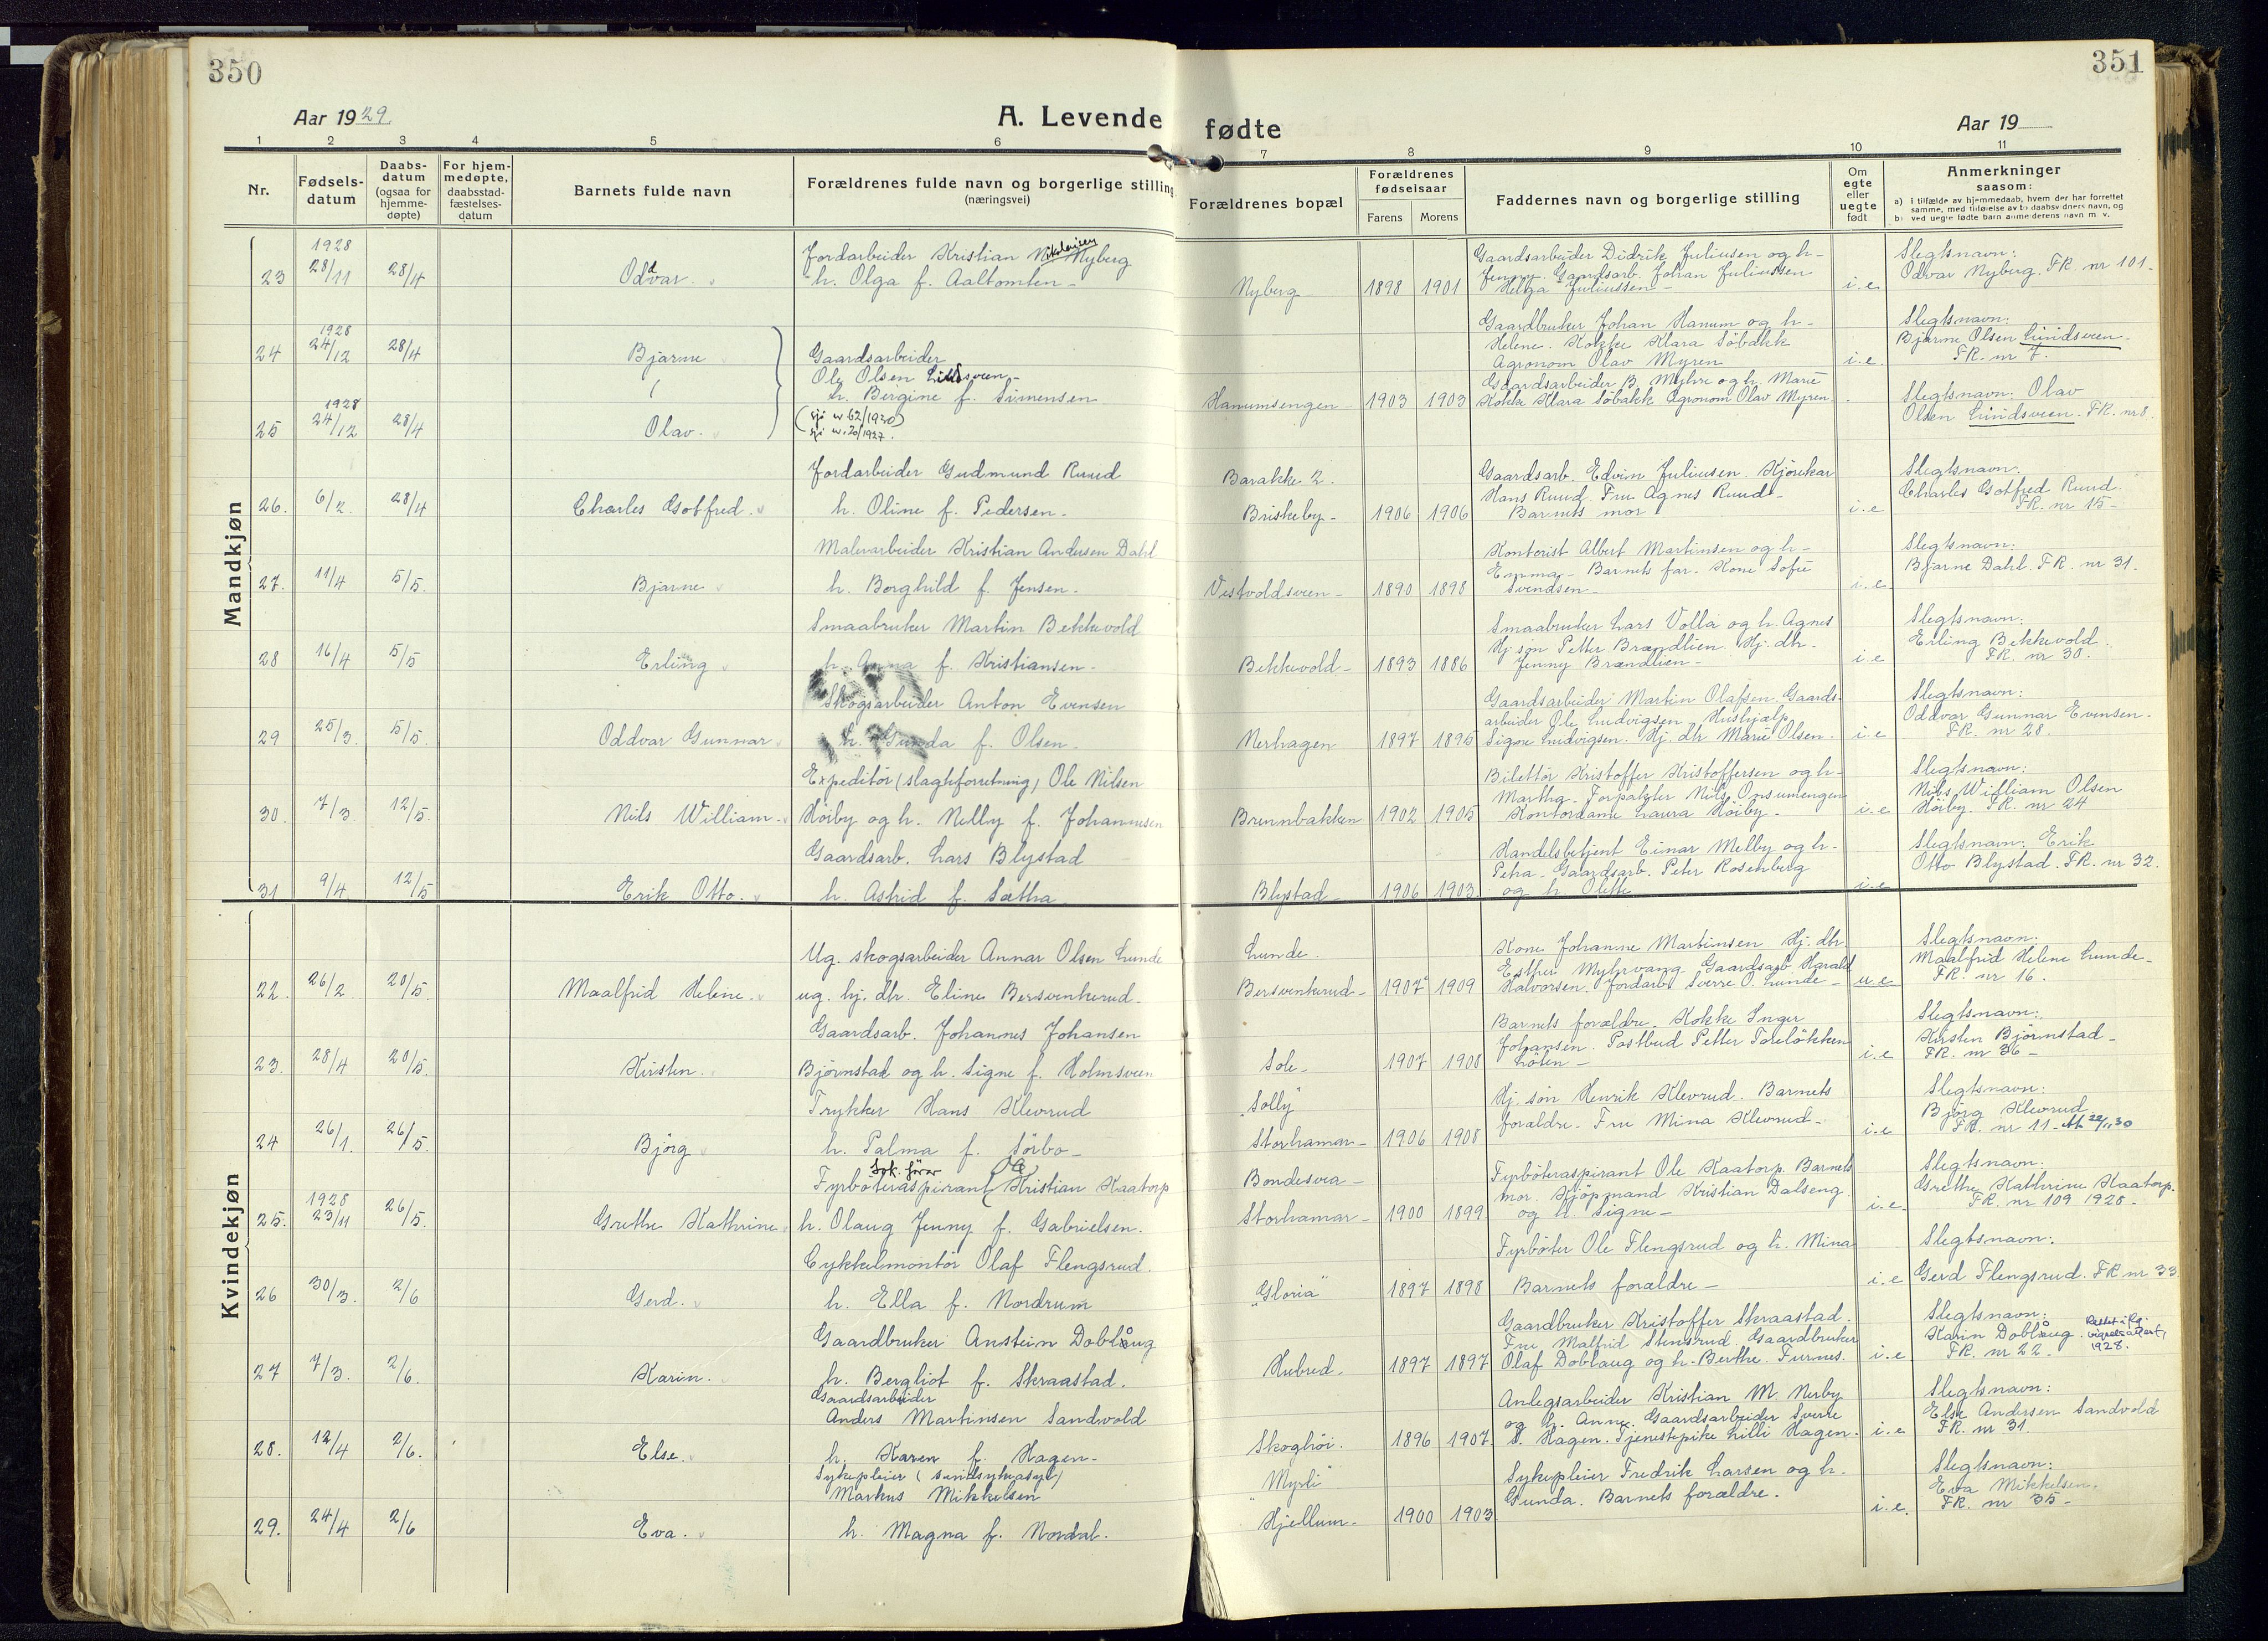 350
351
Aar 1929.
A. Levende fødte
Aar 19
1 2 3 4 5 6 7 8 9 10 11
Nr.
Fødsels-
datum
Daabs-
datum
(ogsaa for
hjemme-
døpte)
For hjem-
medøpte,
daabsstad-
fæstelses-
datum
Barnets fulde navn
Forældrenes fulde navn og borgerlige stilling
(næringsvei)
Forældrenes bopæl
Forældrenes
fødselsaar
Farens Morens
Faddernes navn og borgerlige stilling
Om
egte
eller
uegte
født
Anmerkninger
saasom:
a) i tilfælde av hjemmedaab, hvem der har forrettet
samme, med tilføielse av to daabsvidners navn, og
b) ved uegte fødte barn anmelderens navn m. v.
Mandkjøn
23 1928 28/11 28/4 Oddvar.
Jordarbeider Kristian Nikolaisen Nyberg
h. Olga f. Aaltomten -
Nyberg 1898 1901
Gaardsarbeider Didrik Juliusen og h-
Jenny. Gaardsarb. Johan Juliussen
Helga Juliussen -
i.e.
Slegtsnavn:
Odvar Nyberg. FR. nr 101.
24 1928 24/12 28/4 Bjarne
Gaardsarbeider
Ole Olsen Lindsveen -
h. Bergine f. Simensen
Gaardbruker Johan Hanum og h-
Helene. Kokke Klara Søbakk
Agronom Olav Myren
i.e.
Slegtsnavn:
Bjarne Olsen Lindsveen.
FR. nr 7.
25 1928 24/12 28/4 Olav.
(sjø nr 62/1930)
sjø nr. 20/1927.
Hanumsengen 1903 1903
Gaardsarbeider B. Myhre og h. Marie
Kokke Klara Søbakk Agronom Olav Myren
Slegtsnavn: Olav
Olsen Lindsveen. FR. nr 8.
26. 6/2. 28/4 Charles Gotfred.
Jordarbeider Gudmund Ruud
h. Oline f. Pedersen -
Barakke 2.
Briskeby - 1906 1906
Gaardsarb. Edvin Juliusen. Kjørekar
Hans Ruud. Fru Agnes Ruud -
Barnets mor
i.e
Slegtsnavn:
Charles Gotfred Ruud.
FR. nr 15 -
27. 11/4 5/5. Bjarne
Malerarbeider Kristian Andersen Dahl
h. Borghild f. Jensen.
Vestvoldsveen - 1890 1898
Kontorist Albert Martinsen og h-
Emma - Barnets far - Kone Sofie
Svendsen -
i.e
Slegtsnavn:
Bjarne Dahl. FR. nr 31.
28 16/4 5/5. Erling
Smaabruker Martin Bekkevold
h. Anna f. Kristiansen -
Bekkevold - 1893 1886
Smaabruker Lars Volla og h. Agnes
Hj. søn Petter Brændlien. Hj. dtr.
Jenny Brændlien -
i.e
Slegtsnavn:
Erling Bekkevold.
FR. nr 30.
29 25/3. 5/5. Oddvar Gunnar
Skogsarbeider Anton Evensen
h. Gunda f. Olsen -
Nerhagen 1897 1895
Gaardsarbeider Martin Olafsen. Gaards-
arbeider Ole Ludvigsen. Hushjælp
Signe Ludvigsen. Hj. dtr Marie Olsen -
i.e
Slegtsnavn:
Oddvar Gunnar Evensen -
FR. nr 28.
30. 7/3 12/5. Nils William.
Expeditør (slagteforretning) Ole Nilsen
Høiby og h. Nelly f. Johannesen
Brennbakken 1902 1905
Bilettør Kristoffer Kristoffersen og h-
Martha - Forpakter Nils Onsumengen
Kontordame Laura Høiby -
i.e
Slegtsnavn:
Nils William Olsen
Høiby. FR. nr 24
31 9/4 12/5 Erik Otto.
Gaardsarb. Lars Blystad
h. Astrid f. Sætha
Blystad - 1906 1903
Handelsbetjent Einar Melby og h-
Petra - Gaardsarb. Peter Rosenberg
og h. Olette
i.e
Slegtsnavn: Erik
Otto Blystad. FR. nr 32.
Kvindekjøn
22. 26/2 20/5. Maalfrid Helene.
Ug. skogsarbeider Annar Olsen Lunde
ug. hj. dtr. Eline Bersvenkerud -
Lunde.
Bersvenkerud - 1907 1909
Kone Johanne Martinsen Hj. dtr
Esther Myhrvang Gaardsarb Harald
Halvorsen. Jordarb Sverre O. Lunde -
u.e
Slegtsnavn:
Maalfrid Helene Lunde -
FR. nr 16.
23. 28/4 20/5. Kirsten.
Gaardsarb. Johannes Johansen
Bjørnstad og h. Signe f. Holmsveen
Sole - 1907 1908
Barnets forældre. Kokke Inger
Johansen. Postbud Petter Toreløkken
Løten -
i.e
Slegtsnavn:
Kirsten Bjørnstad -
FR. nr 36 -
24 26/1. 26/5. Bjørg
Trykker Hans Klevrud
h. Palma f. Sørbo -
"Solly"
Storhamar - 1906 1908
Hj. søn Henrik Klevrud. Barnets
forældre. Fru Mina Klevrud -
i.e
Slegtsnavn:
Bjørg Klevrud
FR. nr 11 - Att 22/11 30
25. 1928 23/11 26/5. Grethe Kathrine
Lok. fører
Fyrbøteraspirant Ole Kristian Kaatorp
h. Olaug Jenny f. Gabrielsen.
Bondesvea -
Storhamar - 1900 1899
Fyrbøteraspirant Ole Kaatorp. Barnets
mor. Kjøpmand Kristian Dalseng
og h. Signe -
i.e.
Slegtsnavn:
Grethe Kathrine Kaatorp.
FR. nr 109 1928 -
26 30/3. 2/6 Gerd.
Cykkelmontør Olaf Flengsrud.
h. Ella f. Nordrum
"Gloria" 1897 1898
Fyrbøter Ole Flengsrud og h. Mina
Barnets forældre -
i.e
Slegtsnavn:
Gerd Flengsrud. FR nr 33
27 7/3. 2/6. Karin.
Gaardbruker Anstein Doblaug
h. Bergliot f. Skraastad.
Hubred. 1897 1897
Gaardbruker Kristoffer Skraastad.
Fru Malfrid Stensrud Gaardbruker
Olaf Doblaug og h - Berthe. Furnes.
i.e
Slegtsnavn:
Karin Doblaug.
FR. nr 22 -
28. 12/4 2/6. Else.
Gaardsarbeider
Anders Martinsen Sandvold
h. Karen f. Hagen -
Skoghøi. 1896 1907
Anlegsarbeider Kristian M. Nerby
og h. Anne. Gaardsarbeider Sverre
S. Hagen. Tjenestepike Lilli Hagen.
i.e
Slegtsnavn:
Else Andersen Sandvold
FR. nr 31.
29. 24/4 2/6 Eva.
Sykepleier (sindsykeasyl)
Markus Mikkelsen
h. Magna f. Nordal.
"Myrli"
Hjellum - 1900 1903
Sykepleier Fredrik Larsen og h.
Gunda. Barnets forældre.
i.e.
Slegtsnavn:
Eva Mikkelsen.
FR. nr 35 -